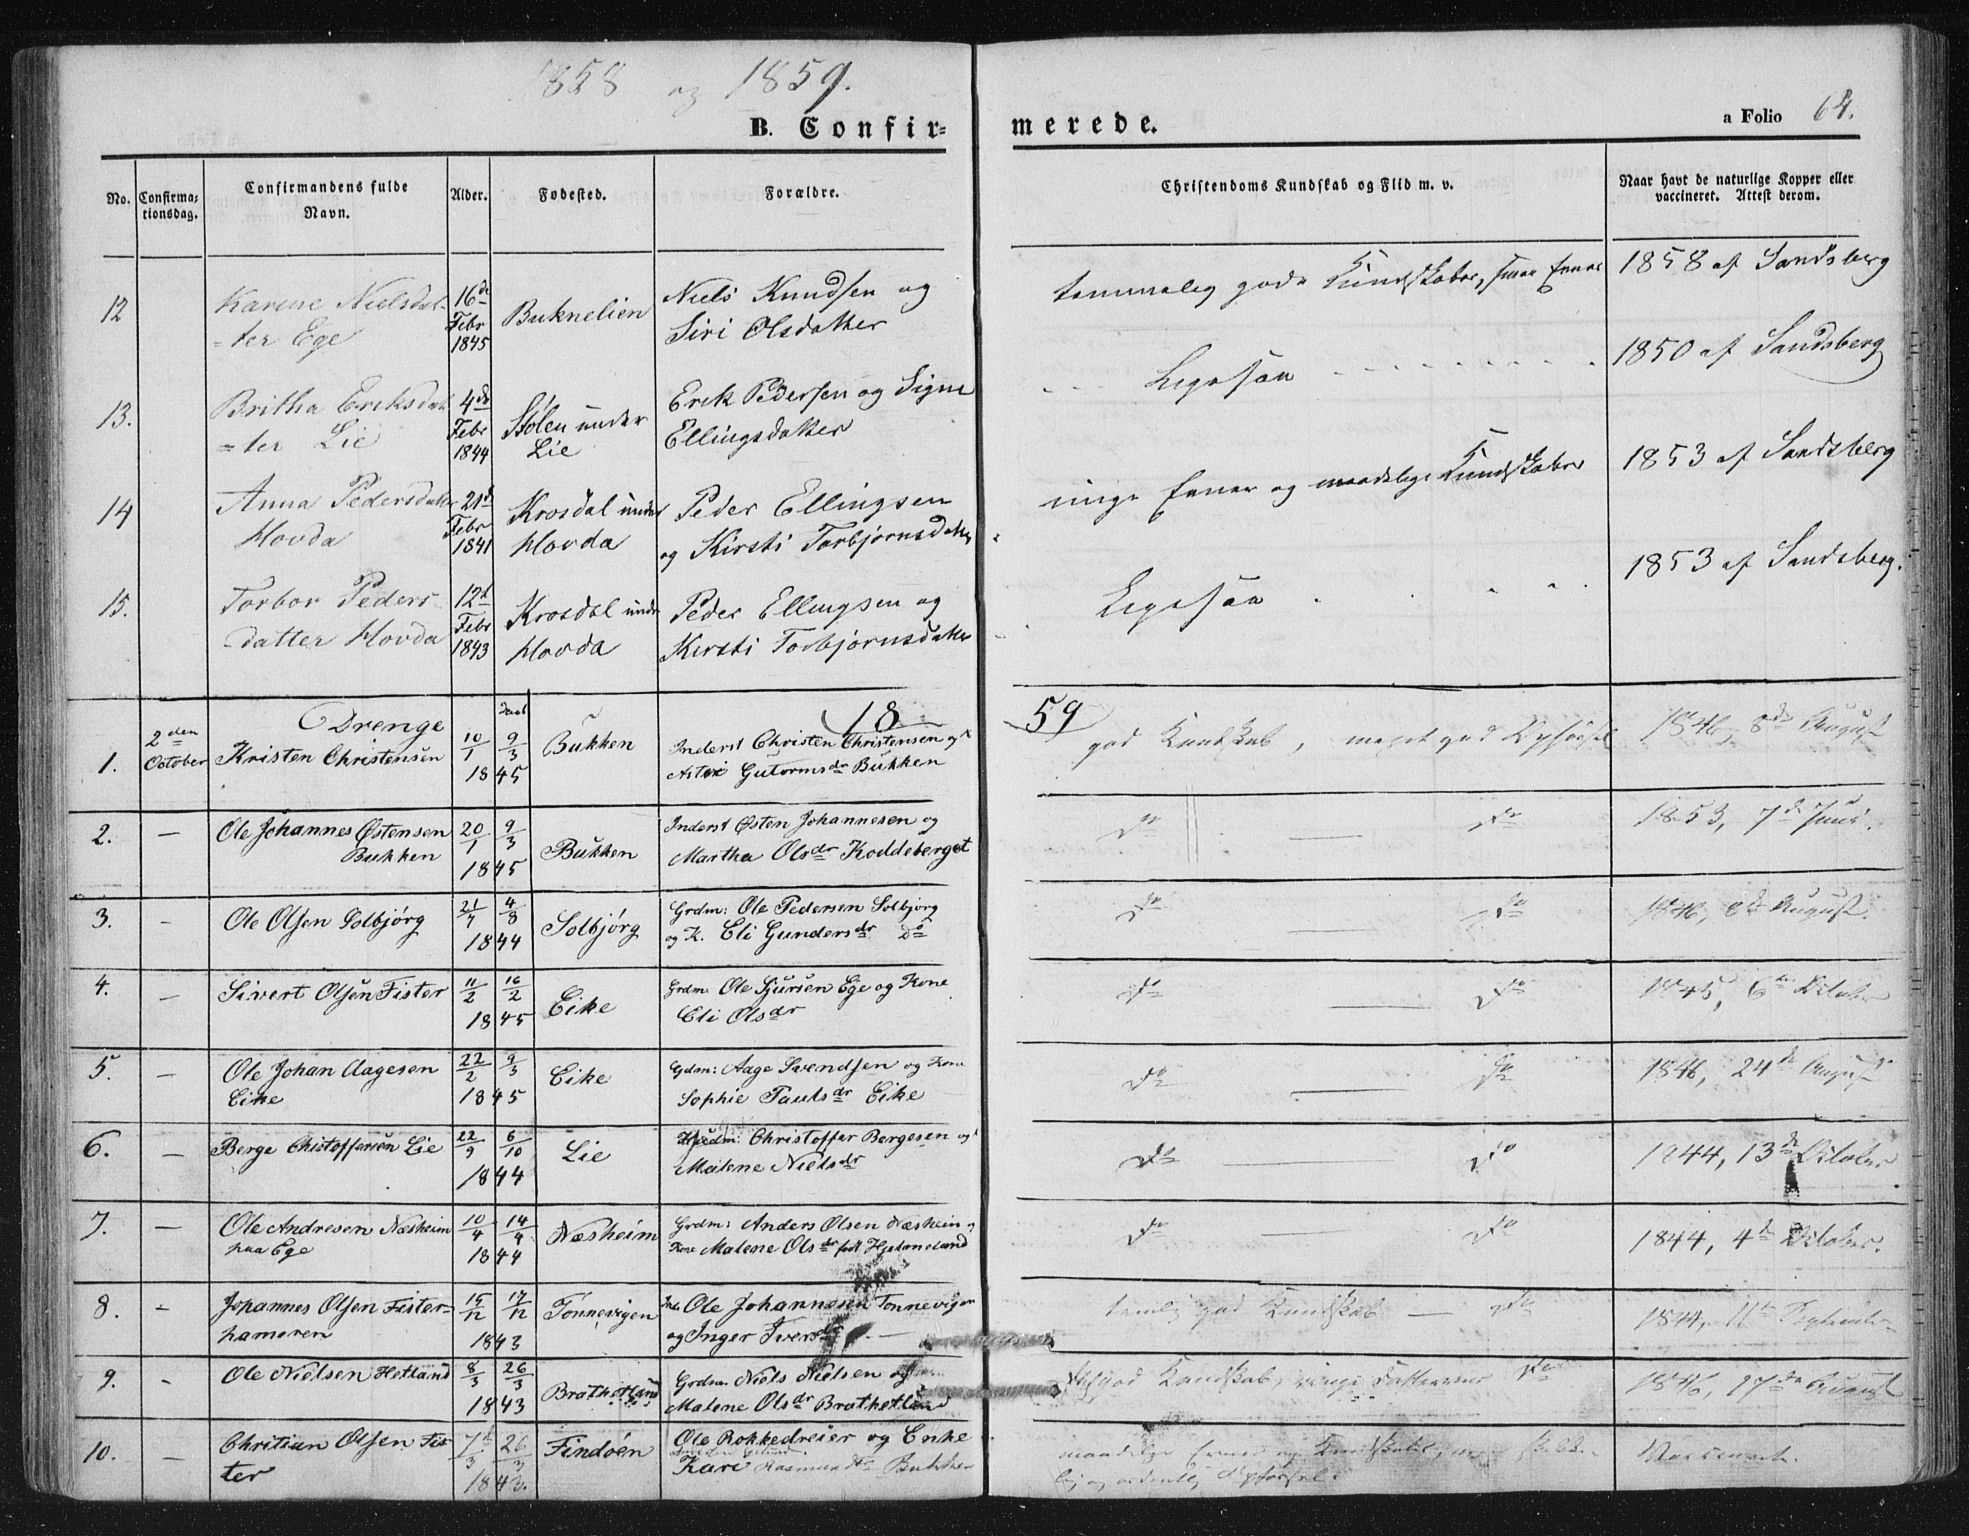 1858 og 1859.
B. Confirmerede.
a Folio 64.
No.
Confirmationsdag.
Confirmandens fulde
Navn.
Alder.
Fødested.
Forældre.
Christendoms Kundskab og Flid m. v.
Naar havt de naturlige Kopper eller
vaccineret. Attest derom.
12
Karene Nielsdat-
=ter Ege
16de
Febr
1845
Buknelien
Niels Knudsen og
Siri Olsdatter
temmelig gode Kundskaber, smaa Evner
1858 af Sandsberg
13.
Britha Eriksdat
=ter Lie
4de
Febr
1844
Stølen under
Lie
Erik Pedersen og Signe
Ellingsdatter
Ligesaa
1850 af Sandsberg
14
Anna Pedersdatter
Hovda
21d
Febr
1841
Krosdal under
Hovda
Peder Ellingsen
og Kirsti Torbjørnsdatter
ringe Evner og maadelige Kundskaber
1853 af Sandsberg
15.
Torbor Peders-
datter Hovda
12d
Febr
1843
Krosdal unde
Hovda
Peder Ellingsen og
Kirsti Torbjørnsdatter
Ligesaa
1853 af Sandsberg.
Drenge
18
59
1.
2den
October
Kristen Christensen
10/1 9/3
1845
Bukken
Inderst Christen Christensen og
Astri Gutormsdr Bukken
god Kundskab, meget god Opførsel
1846, 8de August
2.
—
Ole Johannes Østensen
Bukken
20/1 9/3
1845
Bukken
Inderst Østen Johannesen og
Martha Olsdr Koddeberget
Do — Do
1853, 7de Juni.
3.
-
Ole Olsen Solbjørg
21/7 4/8
1844
Solbjørg
Grdm: Ole Pedersen Solbjørg
og K. Eli Gundersdr Do
Do Do
1846, 8de August.
4.
—
Sivert Olsen Fister
11/2 16/2
1845
Eike
Grdm. Ole Sjursen Ege og Kone
Eli Olsdr
Do — Do
1845, 6te Oktober
5.
—
Ole Johan Aagesen
Eike
22/2 9/3
1845
Eike
Grdm: Aage Svendsen og Kone
Sophie Paulsdr Eike
Do — Do
1846, 24de August
6.
—
Berge Chistoffersen Lie
22/9 6/10
1844
Lie
Christoffer Bergesen og
Malene Nielsdr
Do — Do
1844, 13de Oktober
7.
—
Ole Andresen Næsheim
paa Ege
10/4 14/4
1844
Næsheim
Grdm: Anders Olsen Næsheim og
Kone Malene Olsdr født Hjelmeland
Do — Do
1844, 4de Oktober.
8.
-
Johannes Olsen Fister-
hameren
15/12 17/12
1843
Tønnevigen
Inds Ole Johannesen Tønnevigen
og Inger Iversdr
temlig god Kundskab — Do
1844, 11te September
9.
-
Ole Nielsen Hetland
8/3 26/3
1843
Brathetland
Grdm. Niels Nielsen og
Malene Olsdr Brathetland
god Kundskab, ringe Do
1846, 17de August
10.
—
Christian Olsen Fis
ter
7/3 26/3
1843.
Findøen
Ole Rokkedreier og Enke
Kari Rasmusdtr Bukken
maadelige Evner og Kundskaber,
og ordentlig Opførsel.
Vaccineret.